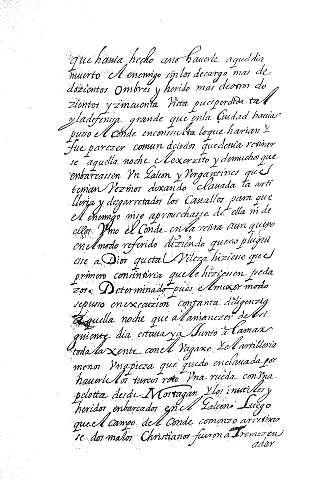 que havia hecho uno haverle aquel dia
muerto el enemigo sin los de cargo mas de
dozientos ombres y herido mas de otros do
zientos y cincuenta Vista pues perdida tal
y la defensa grande que en la Ciudad havia se
puso el Conde en consulta lo que harian y
fue parezer comun de todos que devia retirar
se aquella noche el exerzito y de muchos que
embarcassen Vn Galeon y Vergantines que
tenian Vezinos dexando clavada la arti
lleria y desgarretados los Cavallos para que
el enemigo no se aprovechasse de ella ni de
ellos Vino el Conde en la retira aunque no
en el modo referido diziendo que no plugui
esse a Dios que tal Vileza hiziese que
primero consintiria que le hiziessen peda
zos Determinado pues el mexor modo
se puso en execucion con tanta diligencia
aquella noche que al amanezer del si
guiente dia estava ya Junto a la mar
toda la xente con el Vagaxe y el artilleria
menos Vna pieza que quedo enclavada por
haverle los turcos roto Vna rueda con Vna
pelotta desde Mostagan y los inutiles y
heridos embarcados en el Galeon Luego
que el Campo del Conde comenzo a retirar
se dos malos Christianos fueron a Tremezen
a dar